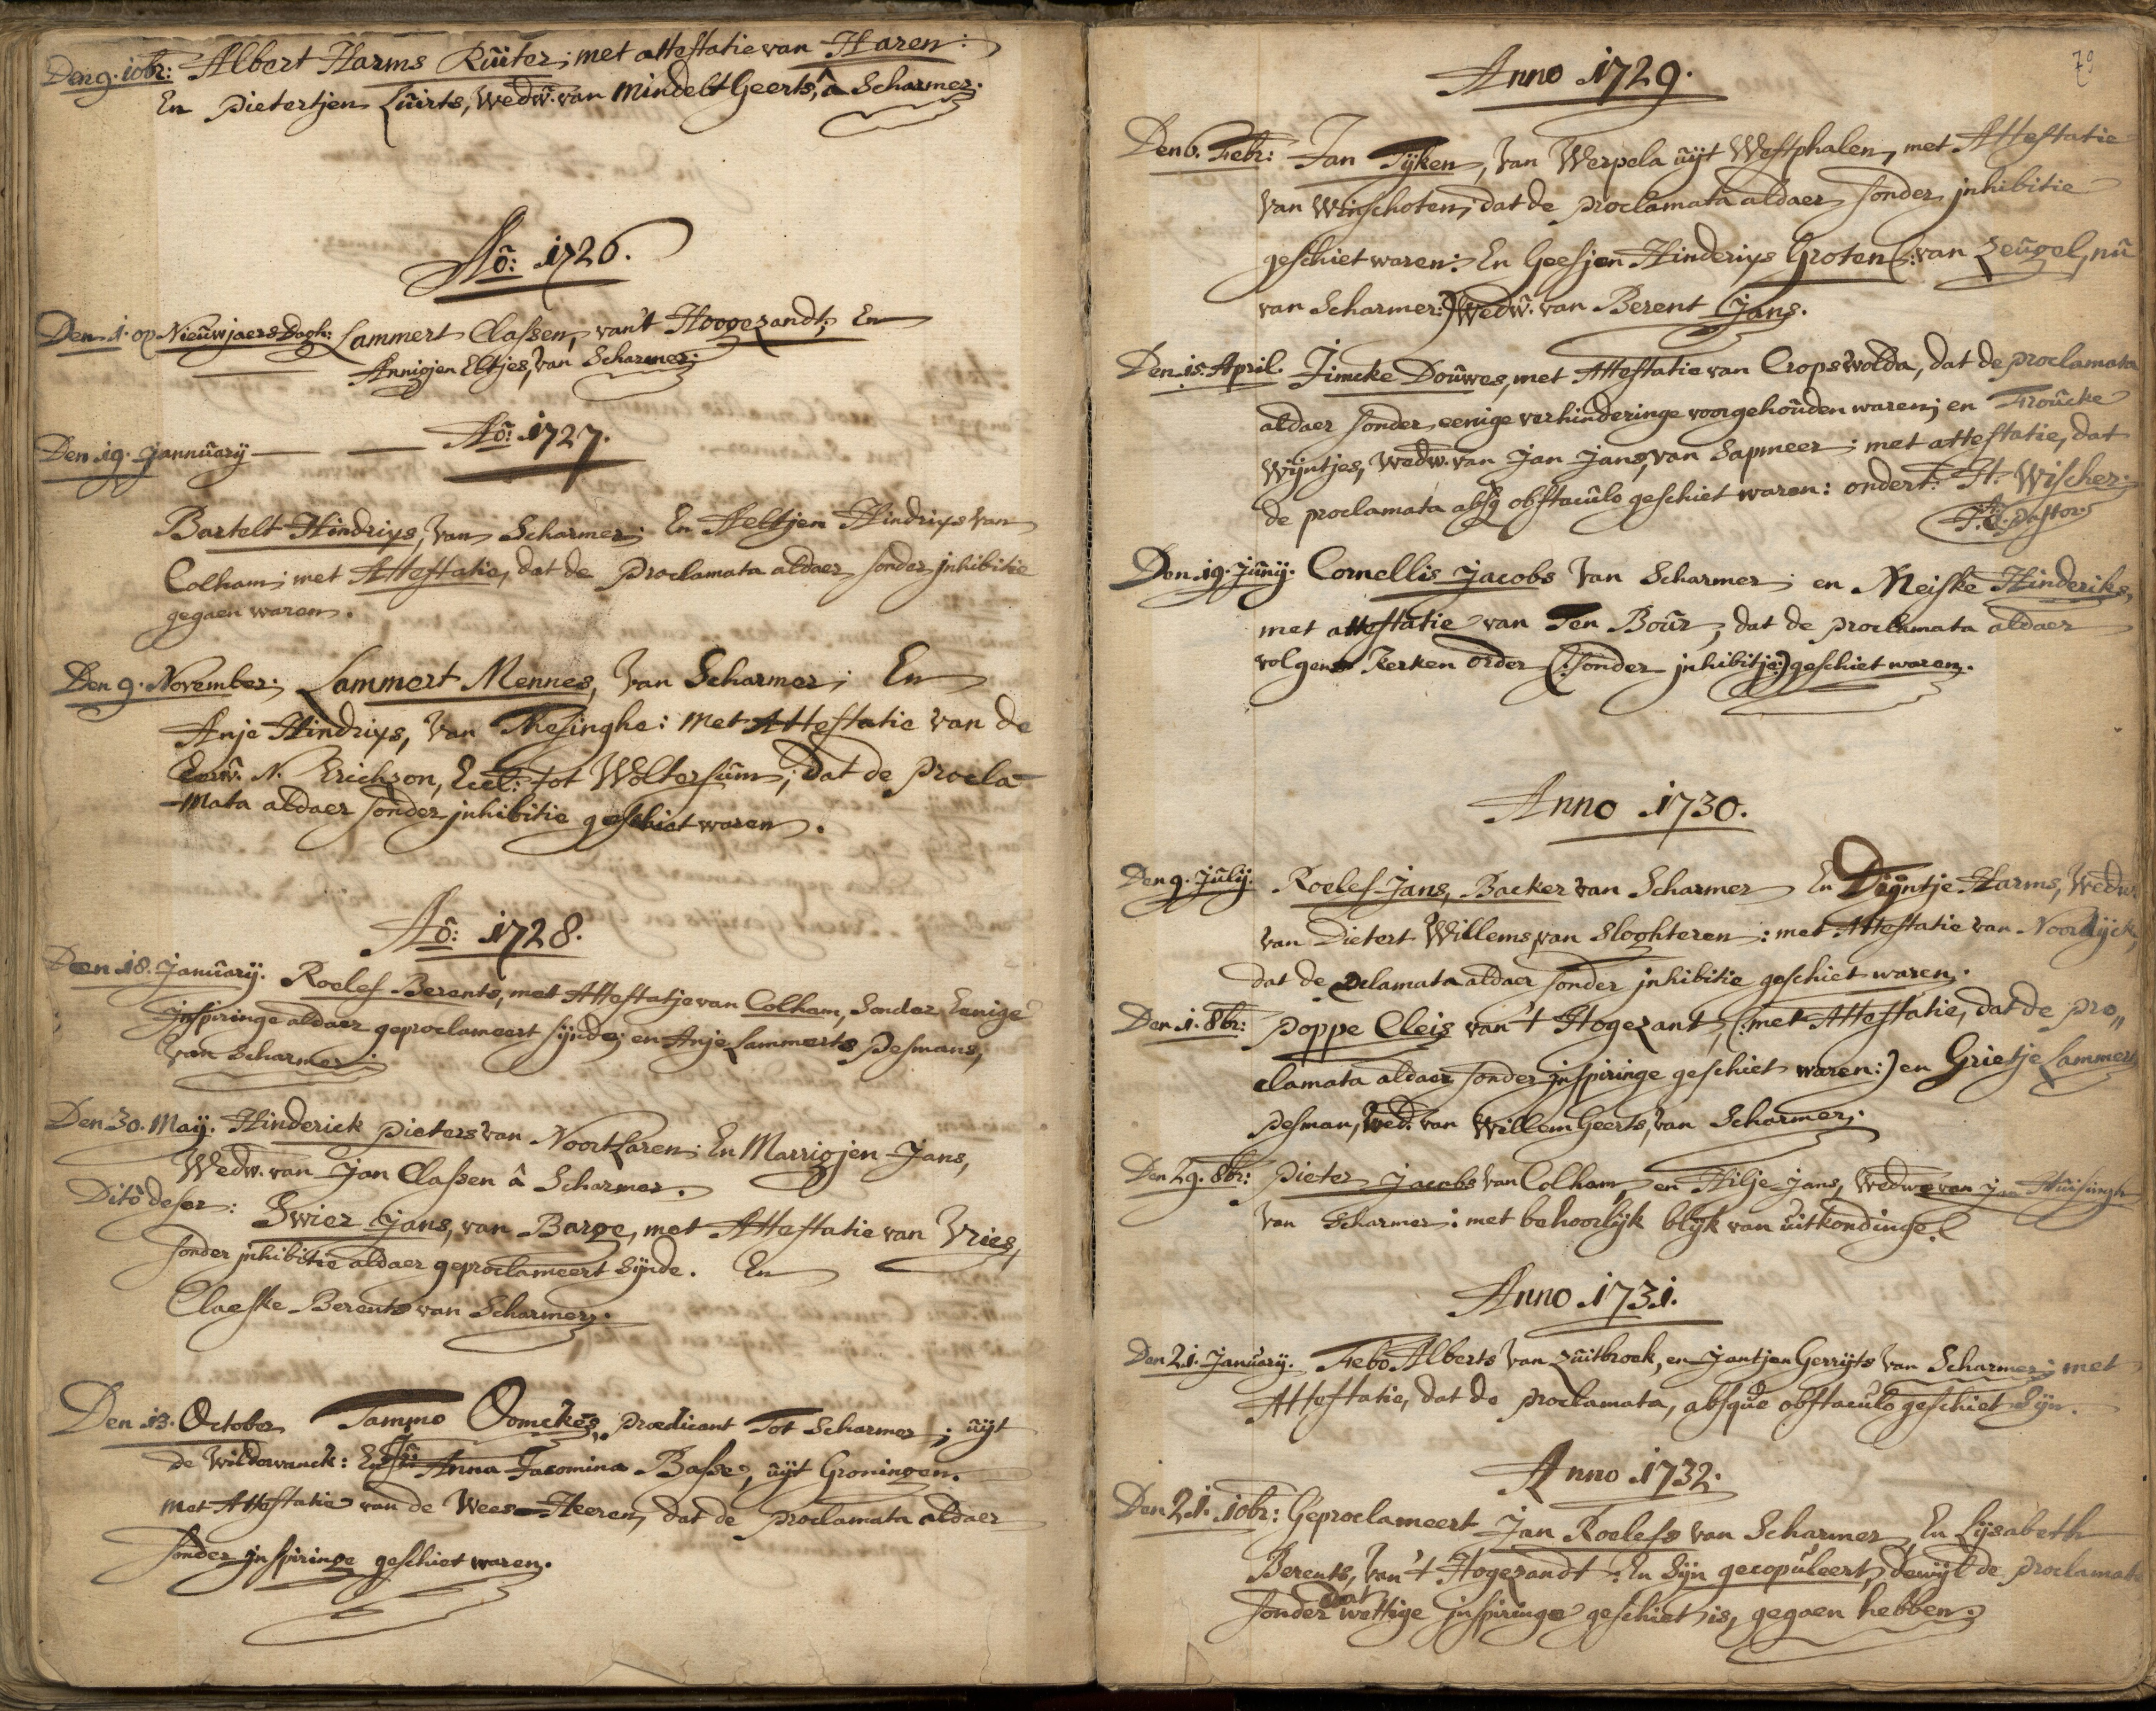 Den 9. 10br: Albert Harms Rûiter; met attestatie van Haren:
En Pietertjen Lûirts, Wedw. van Mindelt Geerts, â Scharmer.
Aõ: 1726.
Den 1. op Nieûwjaers Dagh: Lammert Classen, van't Hoogezandt; En
Annigjen Eltjes, van Scharmer.
Aõ: 1727.
Den 19. Jannûary
Bartelt Hindriys, van Scharmer; En Aeltjen Hindriys van
Colham; met Attestatie, dat de Proclamata aldaer sonder inhibitie
gegaen waren.
Den 9. November; Lammert Mennes, van Scharmer; En
Anje Hindriys, van Thesinghe: met Attestatie van de
Eerw. N. Erichson, Eccl: tot Woltersûm; dat de Procla-
-mata aldaer sonder inhibitie geschiet waren.
Aõ: 1728.
Den 18. Janûarij. Roelef Berents, met Attestatje van Colham, Sonder Eenige
Inspiringe aldaer geproclameert sijnde; en Anje Lammerts Pesmans,
van Scharmer.
Den 30. Maij. Hinderick Pieters van Noortlaren; En Marrigjen Jans,
Wedw. van Jan Classen â Scharmer.
Ditô deser: Swier Jans, van Barge, met Attestatie van Vries,
sonder inhibitie aldaer geproclameert Sijnde. En
Claeske Berents van Scharmer.
Den 13. October Tammo Oomckes, Prædicant Tot Scharmer; ûijt
de Wildervanck: En Jû: Anna Jacomina Basse, ûijt Groningen.
Met Attestatie van de Wees-Heeren, dat de Proclamata aldaer
sonder inspiringe geschiet waren.
79
Anno 1729.
Den 6. Febr: Jan Tijken, van Werpela ûijt Westphalen, met Attestatie
van Winschoten; dat de Proclamata aldaer sonder inhibitie
geschiet waren: En Geesjen Hinderiys Groten (: van Zeûgel, nû
van Scharmer:) Wedw. van Berent Jans.
Den 15. April. Jimcke Doûwes, met Attestatie van Cropswolda, dat de proclamata
aldaer sonder eenige verhinderinge voorgehoûden waren; en Froûcke
Wijntjes, Wedw. van Jan Jans, van Sapmeer; met attestatie, dat
de proclamata absq obstacûlo geschiet waren: ondert. H. Wischer.
Pastor.
Den 19. Jûnij. Cornellis Jacobs van Scharmer; en Meiske Hinderiks,
met attestatie van Ten Boûr, dat de proclamata aldaer
volgens Kerken order (: sonder inhibitje:) geschiet waren.
Anno 1730.
Den 9. Jûlij. Roelef Jans, Backer van Scharmer En Trijntje Harms, Wedw.
van Dietert Willems van Sloghteren: met Attestatie van Noordijck,
dat de Proclamata aldaer sonder inhibitie geschiet waren.
Den 1. 8br: Poppe Cleis van't Hogezant, (: met Attestatie, dat de pro„
clamata aldaer sonder inspiringe geschiet waren:) en Grietje Lammers
Pesman, Wed. van Willem Geerts, van Scharmer;
Den 29. 8br: Pieter Jacobs van Colham, en Hilje Jans, Wedwe van Jan Hûisingh
van Scharmer: met behoorlijk blijk van ûitkondinge.
Anno 1731.
Den 21. Janûarij. Febo Alberts van Zûitbroek, en Jantjen Gerrijts van Scharmer; met
Attestatie, dat de proclamata, absque obstacûlo geschiet Sijn.
Anno 1732.
Den 21. 10br: Geproclameert Jan Roelefs van Scharmer, En Lijsabeth
Berents, van't Hogezandt. En Sijn gecopûleert, dewijl de proclamata
sonder dat wettige inspiringe geschiet is, gegaen hebben.